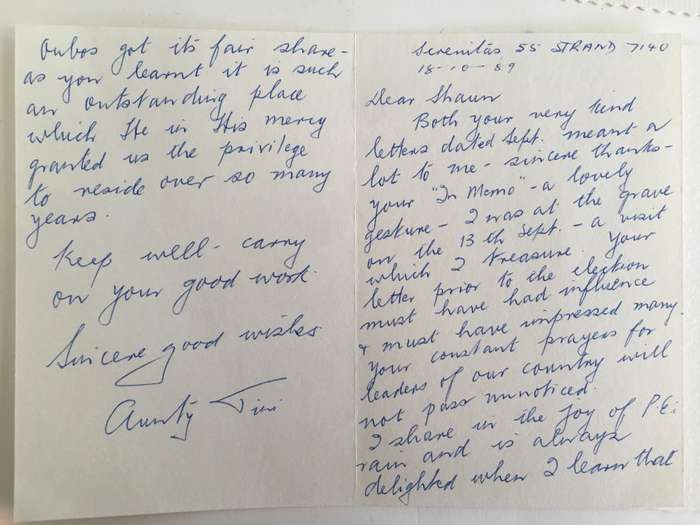 Serenitas 55 STRAND 7140
18-10-89
Dear Shaun
Both your very kind
letters dated Sept. meant a
lot to me - sincere thanks -
your "In Memo" - a lovely
gesture - I was at the grave
on the 13th Sept. - a visit
which I treasure. Your
letter prior to the election
must have had influence
& must have impressed many.
Your constant prayers for
leaders of our country will
not pass unnoticed.
I share in the joy of P.E.
rain and is always
delighted when I learn that
Oubos got it's fair share -
as you learnt it is such
an outstanding place
which He in His mercy
granted us the privilege
to reside over so many
years.
Keep well - carry
on your good work.
Sincere good wishes
Aunty